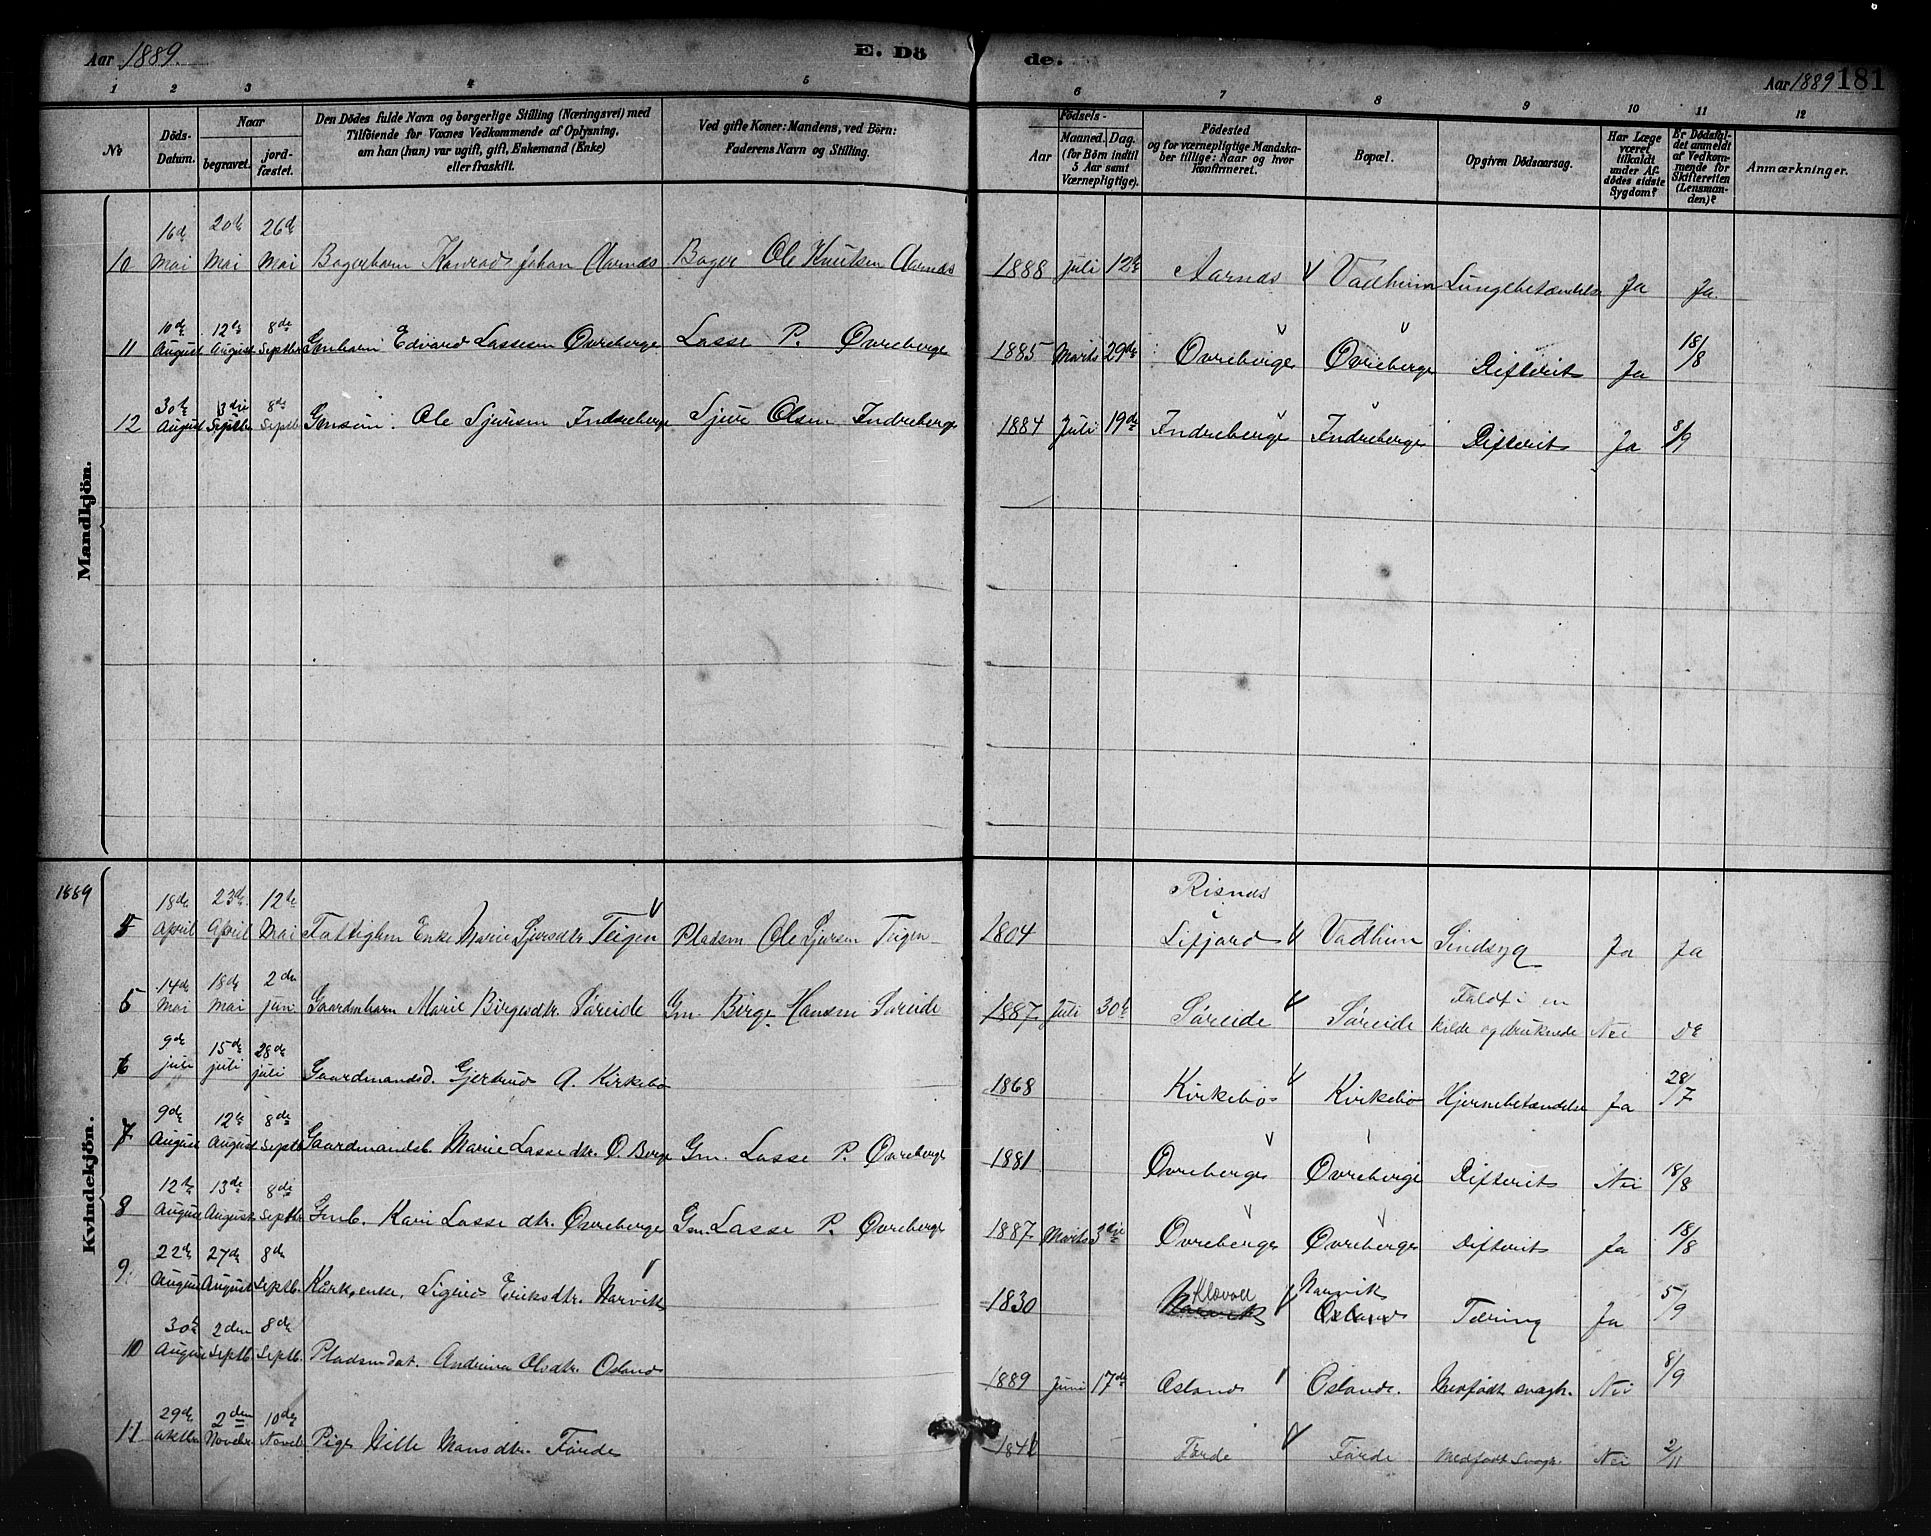 Aar 1889.
E. Dö
de.
Aar 1889 181
1 2 3 4 5 6 7 8 9 10 11 12
No
Döds-Datum.
Naar
begravet.
jordfæstet.
Den Dödes fulde Navn og borgerlige Stilling (Næringsvei) med
Tilföiende for Voxnes Vedkommende af Oplysning,
om han (hun) var ugift, gift, Enkemand (Enke)
eller fraskilt.
Ved gifte Koner: Mandens, ved Börn:
Faderens Navn og Stilling.
Födsels-
Aar
Maaned. Dag.
(for Börn indtil
5 Aar samt
Værnepligtige).
Födested
og for værnepligtige Mandska-
ber tillige: Naar og hvor
konfirmeret.
Bopæl.
Opgiven Dödsaarsag.
Har Læge
været
tilkaldt
under Af-
dödes sidste
Sygdom?
Er Dödsfal-
det anmeldt
af Vedkom-
mende for
Skifteretten
(Lensman-
den)?
Anmærkninger.
Mandkjön.
10 16de Mai 20de Mai 26de Mai Bagerbarn Konrad Johan Aarnæs Bager Ole Knutsen Aarnæs 1888 Juli 12te Aarnæs Vadheim Lungebetændelse Ja Ja.
11 10de August 12te August 8de Septbr Gmbarn Edvard Lassesen Øvreberge Lasse P. Øvreberge 1885 Marts 29de Øvreberge Øvreberge Difterit Ja 18/8
12 30te August 3die Septbr 8de Septb Gmsøn. Ole Sjursen Indreberge Sjur Olsen Indreberge 1884 Juli 19de Indreberge Indreberge Difterit Ja 8/9
1889
Kvindekjön.
5 18de April 23de April 12te Mai Fattiglem Enke Marie Sjursdtr Teigen Pladsm Ole Sjursen Teigen 1804 Risnes Lifjord Vadheim Sindsyg Ja Ja
5 14de Mai 18de Mai 2den Juni Gaardmbarn Marie Birgesdtr. Søreide Gm. Birge Hansen Søreide 1887 Juli 30te Søreide Søreide Faldt i en kilde og druknede Nei De
6 9de juli 15de juli 28de juli Gaardmandsd. Gjertrud A. Kirkebø 1868 Kirkebø Kirkebø Hjernebetændelse Ja 28/7
7 9de August 12te August 8de Septb Gaardmandsb. Marie Lassedtr. Ø. Berge Gm. Lasse P. Øvreberge 1881 Øvreberge Øvreberge Difterit Nei 18/8
8 12te August 13de August 8de Septbr Gmb. Kari Lassedtr. Øvreberge Gm. Lasse P. Øvreberge 1887 Marts 3die Øvreberge Øvreberge Difterit Ja 18/8
9. 22de August 27de August 8de Septb. enke. Sigrid Eriksdtr. Narvik 1830 Klævold Narvik Osland Tæring Ja 5/9
10 30te August 2den Septb. 8de Septb. Pladsmdat. Andrina Olsdtr. Osland 1889 Juni 17de Osland Osland. Medfødt svagh. Nei 8/9
11 29de oktbr 2den Novbr 10de Novbr Pige Mansdtr. Førde Førde Førde Medfødt Svagh. Nei 2/11